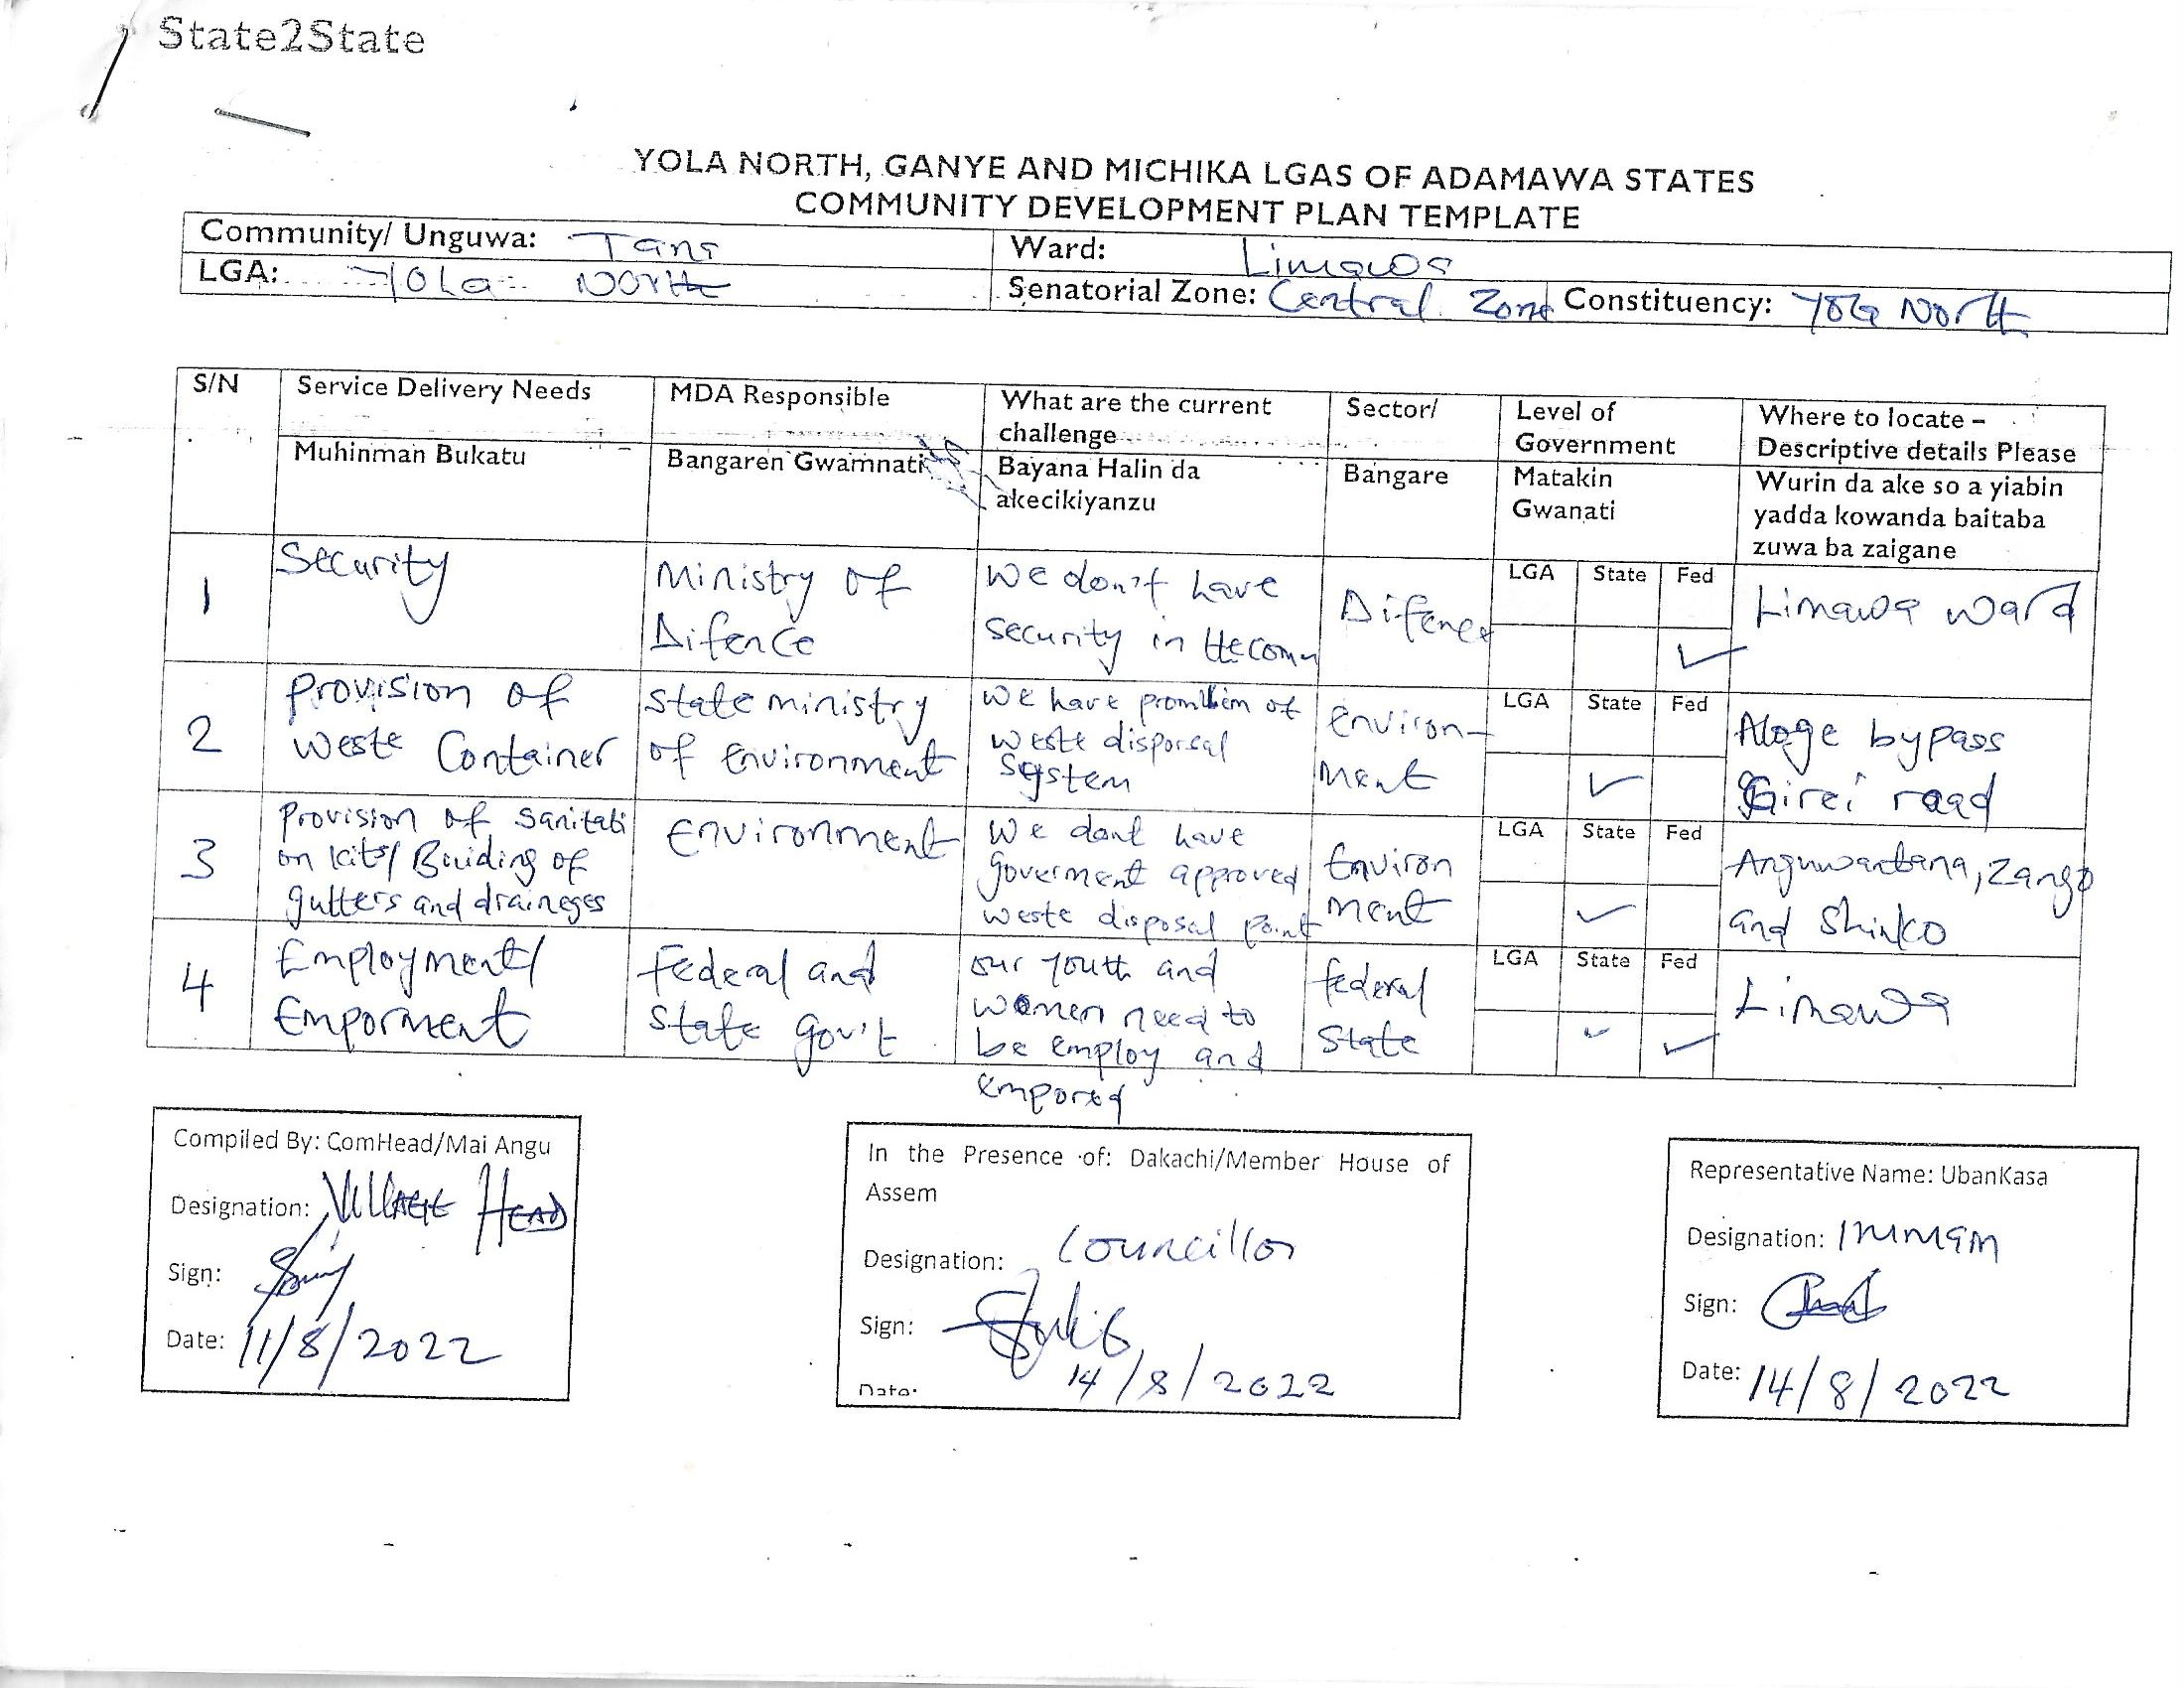 State2State
YOLA NORTH, GANYE AND MICHIKA LGAS OF ADAMAWA STATES
COMMUNITY DEVELOPMENT PLAN TEMPLATE
Community/ Unguwa: Ward: Limawa
LGA: Yola North Senatorial Zone: Central Zone Constituency: Yola North
S/N Service Delivery Needs MDA Responsible What are the current challenge Sector/ Level of Government Where to locate – Descriptive details Please
Muhinman Bukatu Bangaren Gwamnati Bayana Halin da akecikiyanzu Bangare Matakin Gwanati Wurin da ake so a yiabin yadda kowanda baitaba zuwa ba zaigane
1 Security Ministry of Difence We don't have security in the comm Difence LGA State Fed ✓ Limawa ward
2 Provision of Weste Container State ministry of Environment We have of weste disporsal system Environ-ment LGA State ✓ Fed bypass Girei road
3 Provision of sanitation kits/ Buiding of gutters and draineges Environment We dont have goverment approved weste disposal point Environment LGA State ✓ Fed Zango and Shinko
4 Employment/ Emporment Federal and State gov't our youth and women need to be employ and empored federal State LGA State ✓ Fed ✓ Limawa
Compiled By: ComHead/Mai Angu
Designation: Village Head
Sign:
Date: 11/8/2022
In the Presence of: Dakachi/Member House of
Assem
Designation: Councillor
Sign:
Date: 14/8/2022
Representative Name: UbanKasa
Designation: Immam
Sign:
Date: 14/8/2022